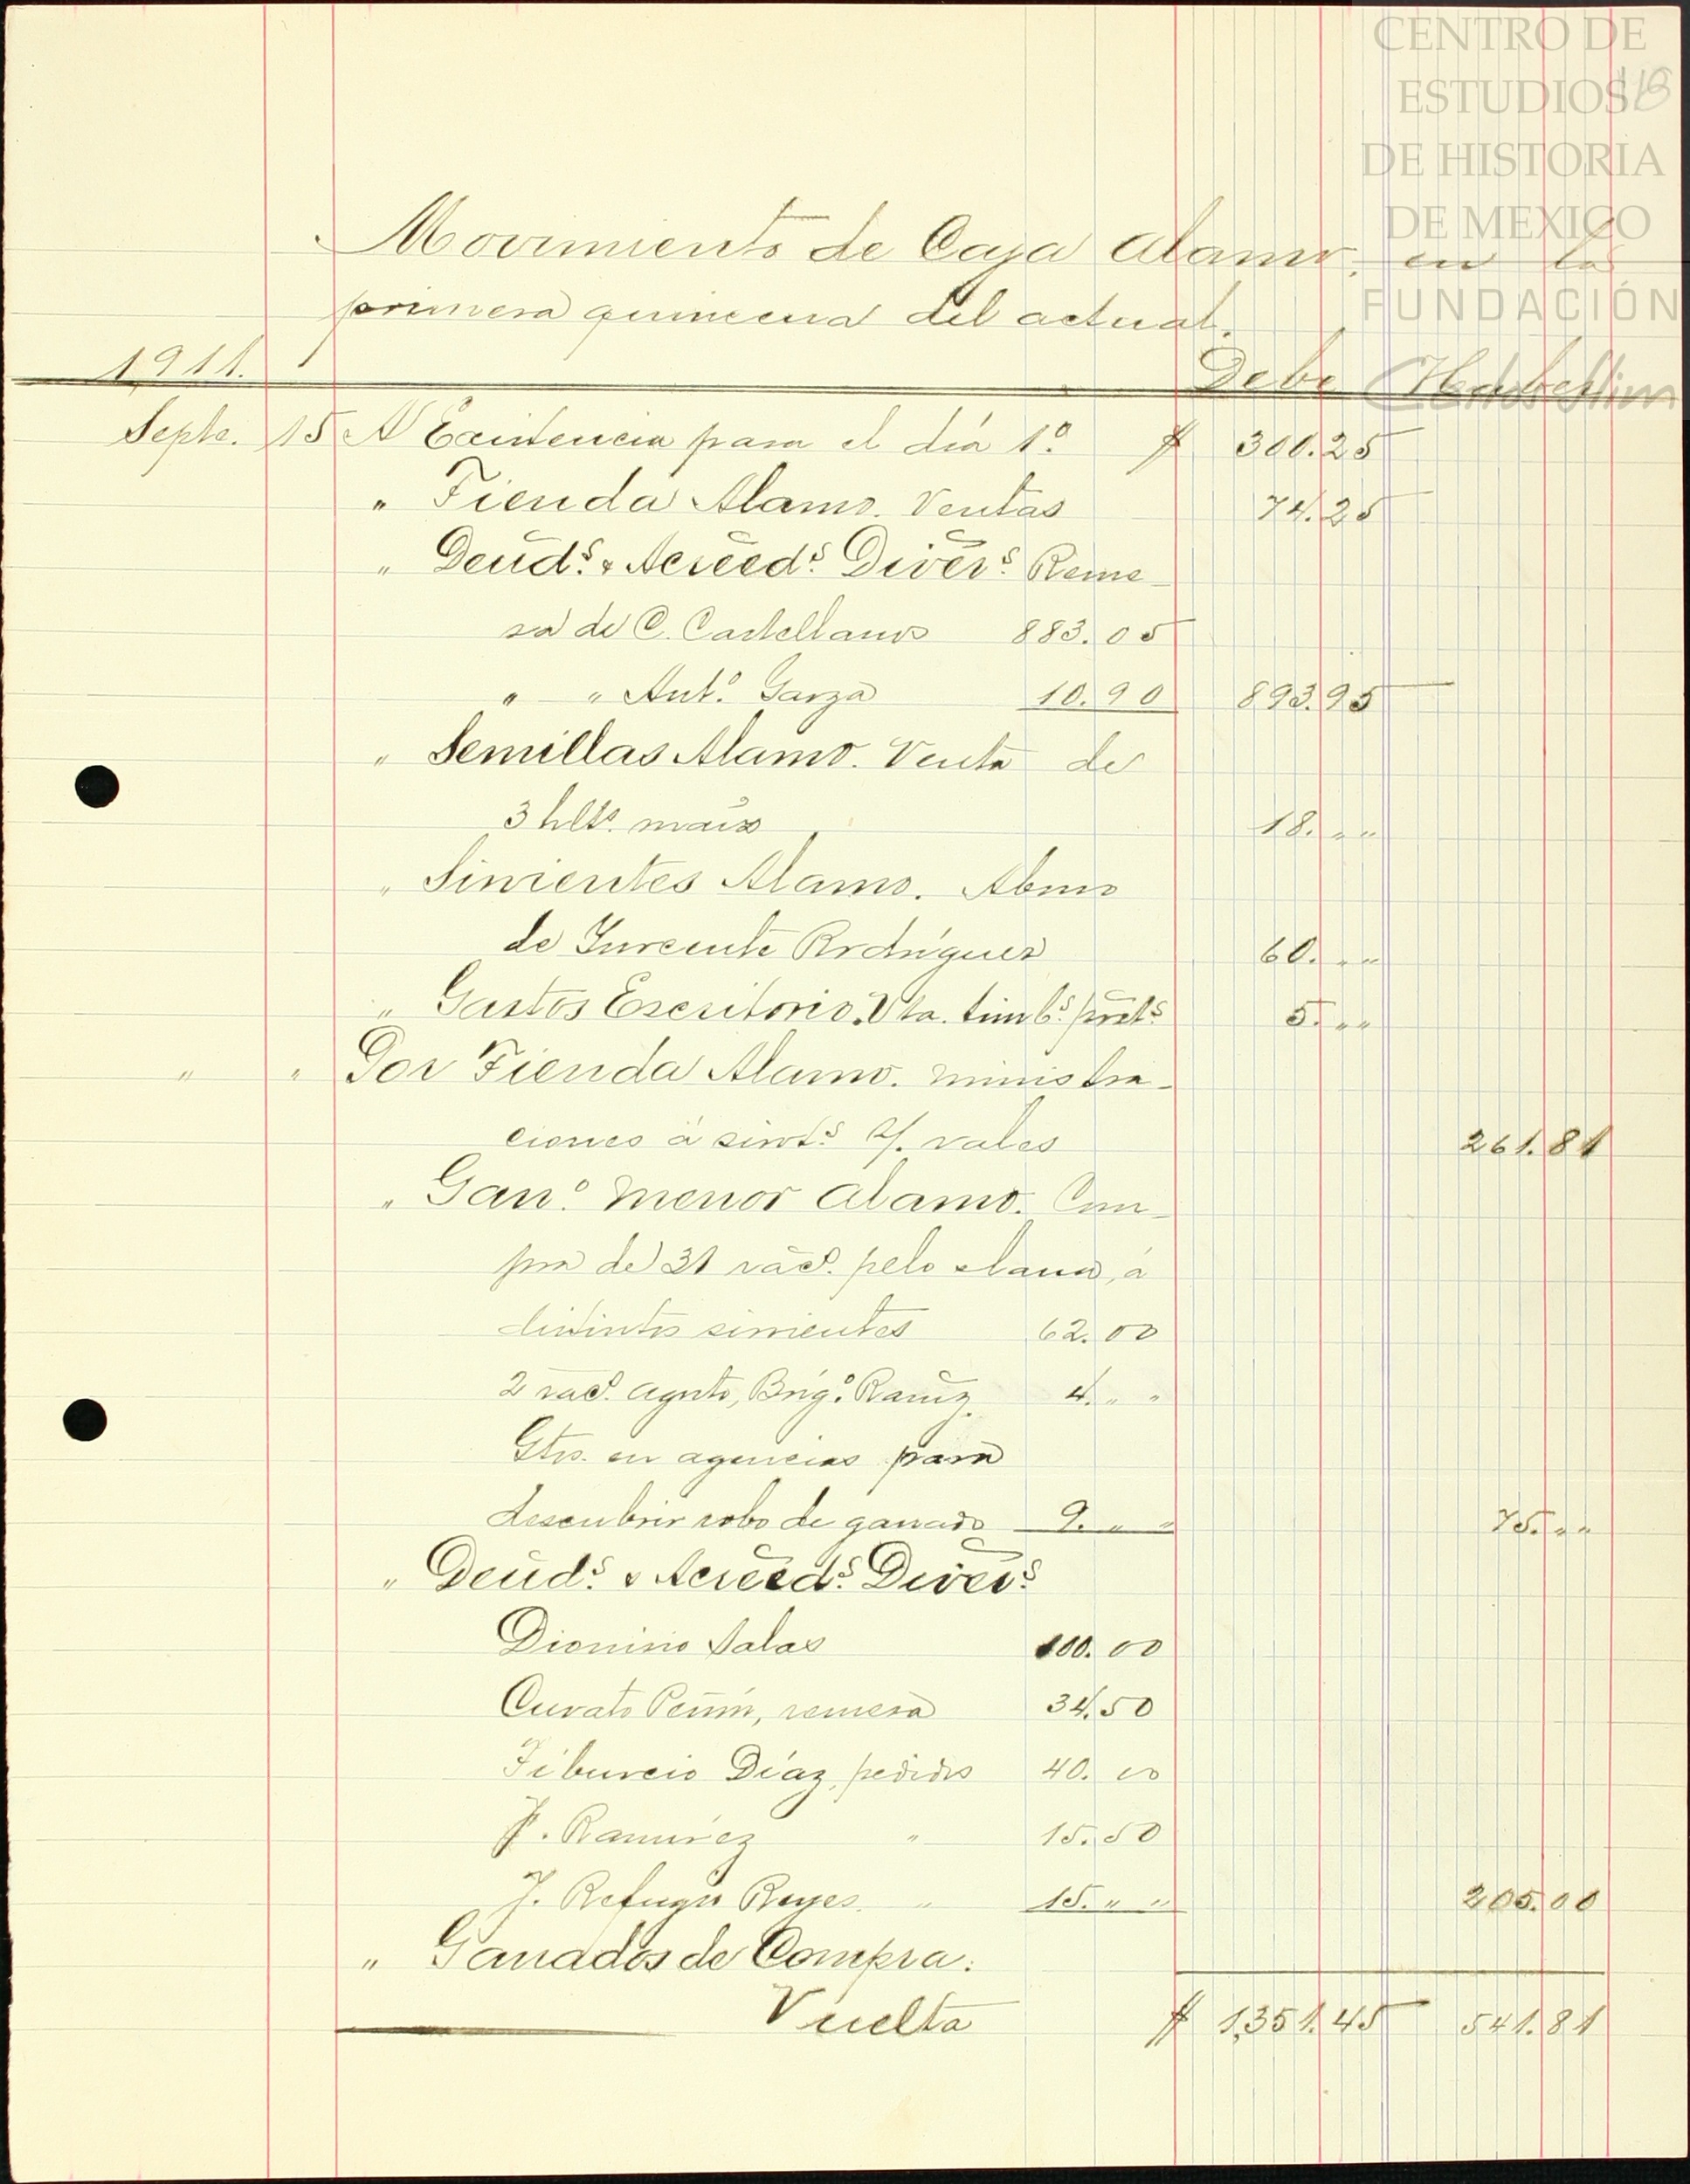 CENTRO DE
ESTUDIOS
DE HISTORIA
DE MEXICO
FUNDACIÓN
Movimiento de Caja Alamo, en la
primera quincena del actual.
1911. Debe Haber
Septe. 15 A Existencia para el día 1º. $ 300.25
" Tienda Alamo. Ventas 74.25
" Deuds. & Acreeds. Divers. Reme-
sa de C. Castellanos 883.05
" " Anto. Garza 10.90 893.95
" Semillas Alamo. Venta de
3 hlts. maiz 18. " "
" Sirvientes Alamo. Abono
de Inocente Rodríguez 60. " "
" Gastos Escritorio. Vta. timbs. posts. 5. " "
" " Por Tienda Alamo. ministra-
ciones á sirvts. s/. vales 261.81
" Gano. menor Alamo. Com-
pra de 31 racs. pelo y lana, á
distintos sirvientes 62.00
2 racs. Agosto, Brigo. Ramz. 4. " "
Gtos. en agencias para
descubrir robo de ganado 9. " " 75. " "
" Deuds. & Acreeds. Divers.
Dionisio Salas 100.00
Curato Peñon, remesa 34.50
Tiburcio Díaz, pedidos 40.00
P. Ramírez " 15.50
J. Refugio Reyes. " 15. " " 205.00
" Ganados de Compra.
Vuelta $ 1,351.45 541.81